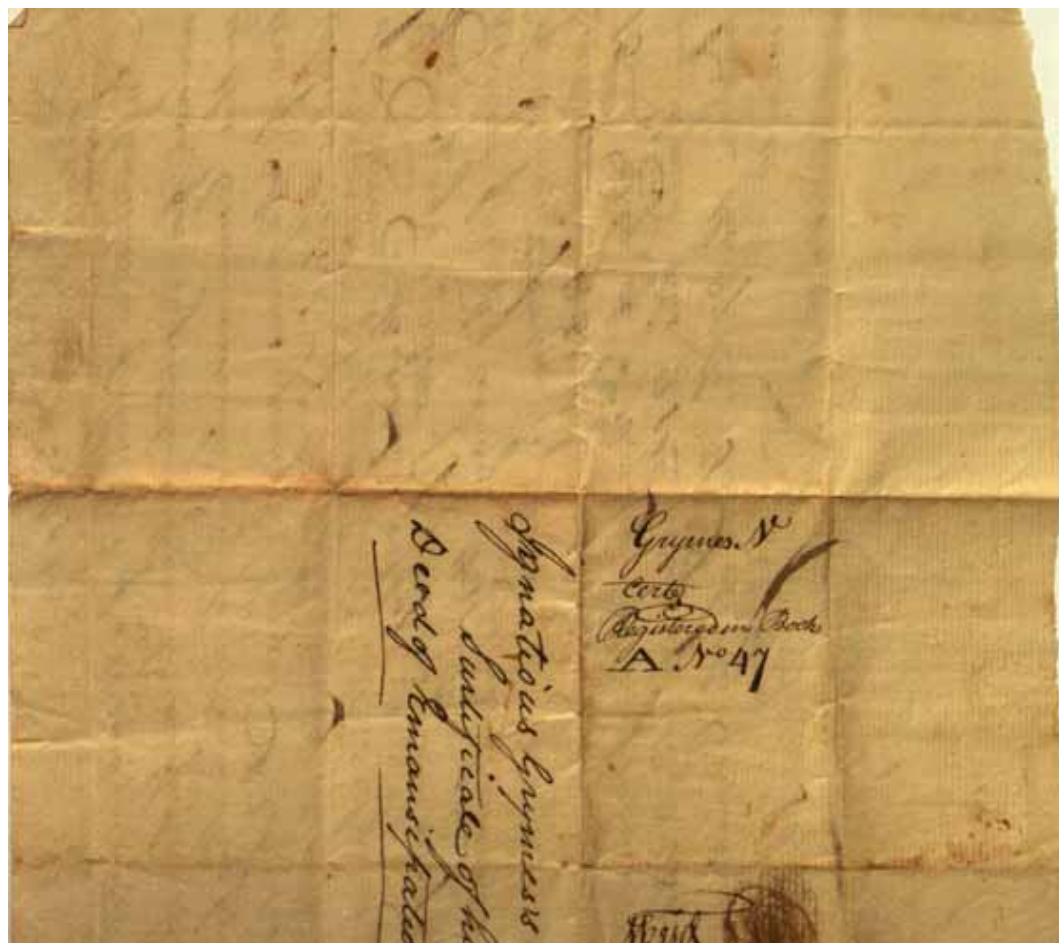 Grymes N
Certe
Registered in Book
A No 47
Ignatious Grymeses
Surtificate of hi
Deed of Emansipatio